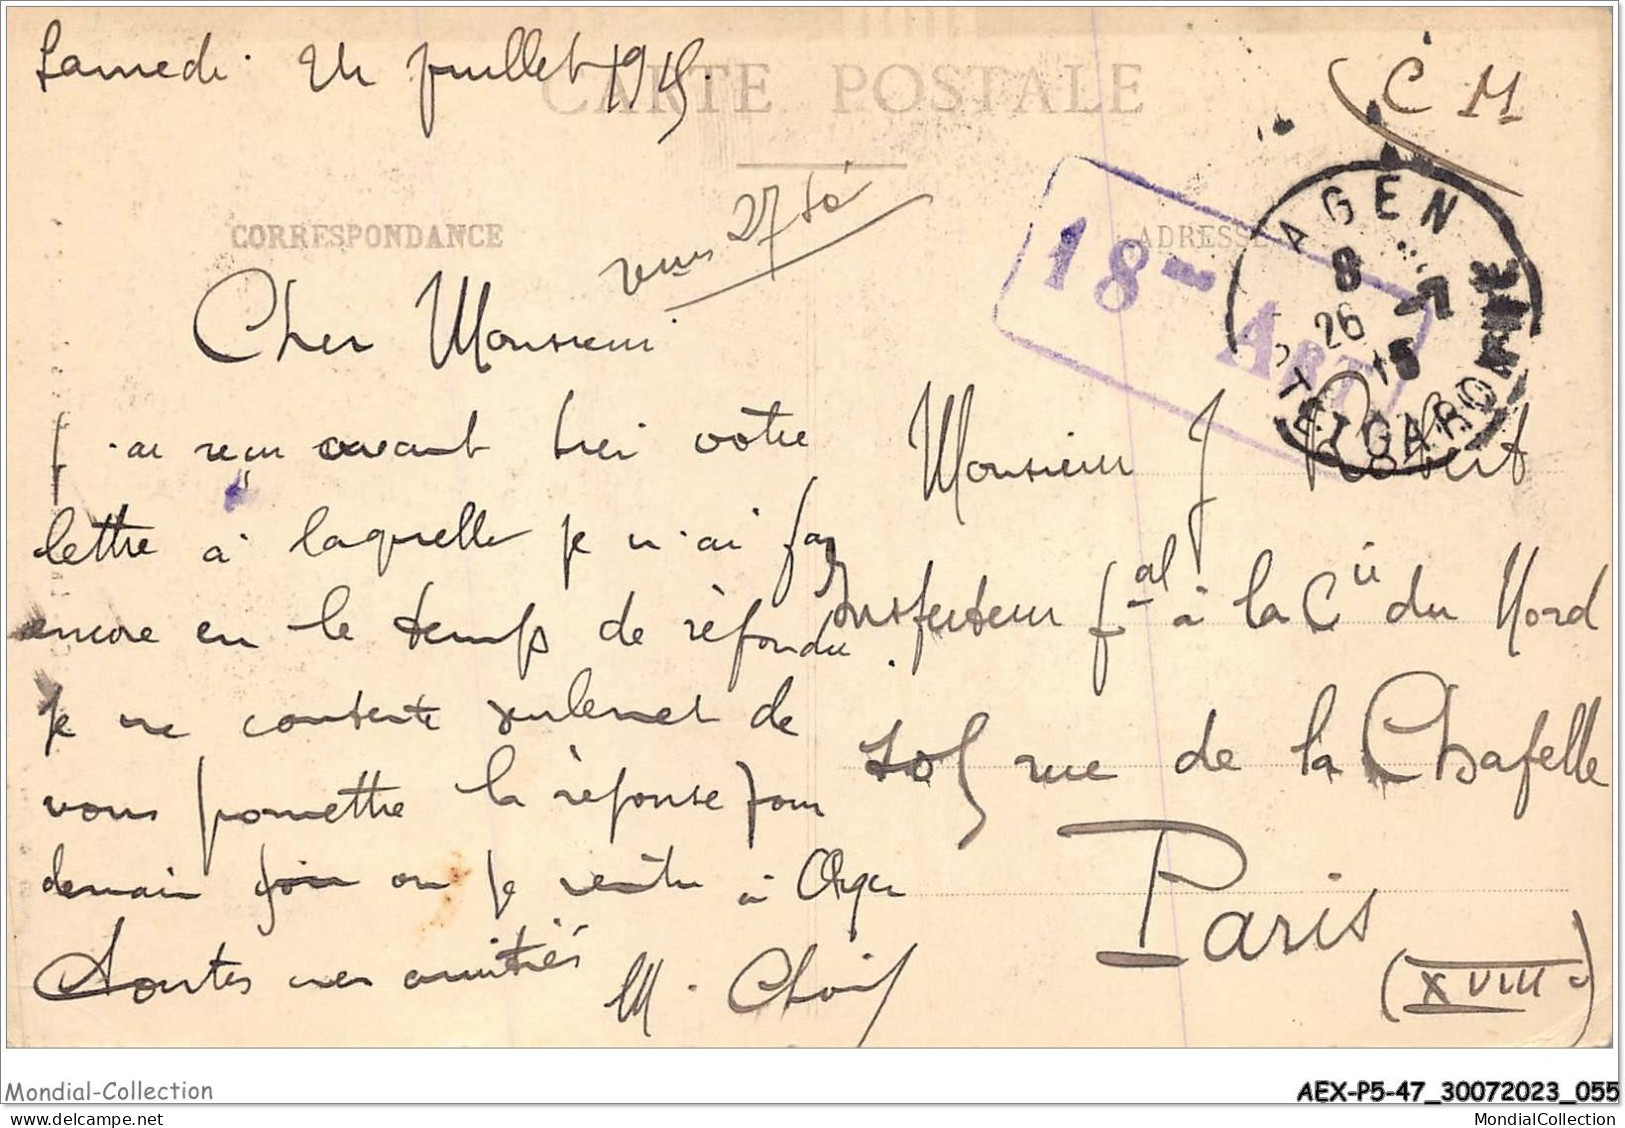 Samedi 24 juillet 1915.
CARTE POSTALE
C M
CORRESPONDANCE
ADRESSE
27
18 - ART
AGEN
8
26 -7
15
LOT-ET-GARONNE
Cher Monsieur
J'ai reçu avant hier votre
lettre à laquelle je n'ai pas
encore eu le temps de répondre.
Je me contente seulement de
vous promettre la réponse pour
demain jour où je
Toutes mes amitiés
M.
Monsieur J Robert
Inspecteur pal à la Cie du Nord
rue de la Chapelle
Paris
(XVIIIe)
Mondial-Collection
AEX-P5-47_30072023_055
MondialCollection